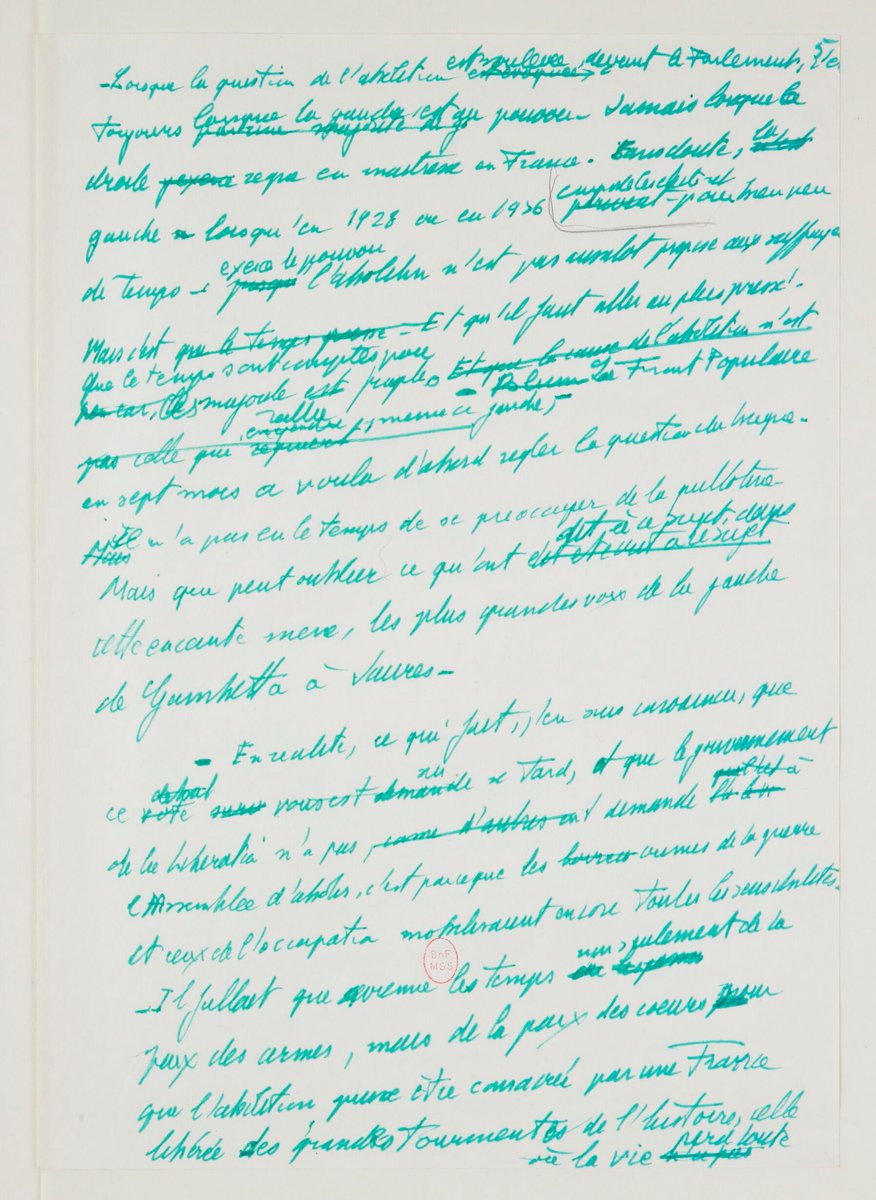 5
- Lorsque la question de l'abolition est soulevée, devant le Parlement, c'e
toujours lorsque la gauche est au pouvoir - Jamais lorsque la
droite regne en maitresse en France. Sans doute, la
gauche lorsqu'en 1928 ou en 1936
pour bien peu
de temps - exerce le pouvoir l'abolition n'est pas aussitot propose aux suffrages
Mais c'est que le temps presse - Et qu'il faut aller au plus pressé!
Que le temps sont comptés pour
majorité est fragile. Et que la cause de l'abolition n'est
pas celle que rallie meme à gauche, - Le Front Populaire
en sept mois a voulu d'abord regler la question du bagne.
Il n'a pas eu le temps de se préoccuper de la guillotine
Mais que peut oublier ce qu'ont dit à ce sujet, dans
cette enceinte meme, les plus grandes voix de la gauche
de Gambetta à Jaures -
- En realité, ce qui fait, j'en suis convaincu, que
ce debat vous est venu si tard, et que le gouvernement
de la Libération n'a pas, comme d'autres ont demande à
l'Assemblée d'abolir, c'est parceque les crimes de la guerre
et ceux de l'occupation mobilisaient encore toutes les sensibilités.
BnF
MSS
- Il fallait que vienne les temps non seulement de la
paix des armes, mais de la paix des coeurs pour
que l'abolition puisse être consacrée par une France
libérée des grandes tourmentes de l'histoire, celle
où la vie perd toute